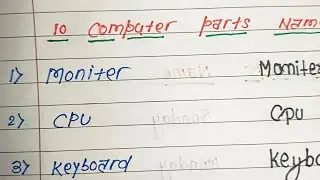 10 Computer parts Nam
1) Moniter Monite
2) CPU Cpu
3) Keyboard Keybo